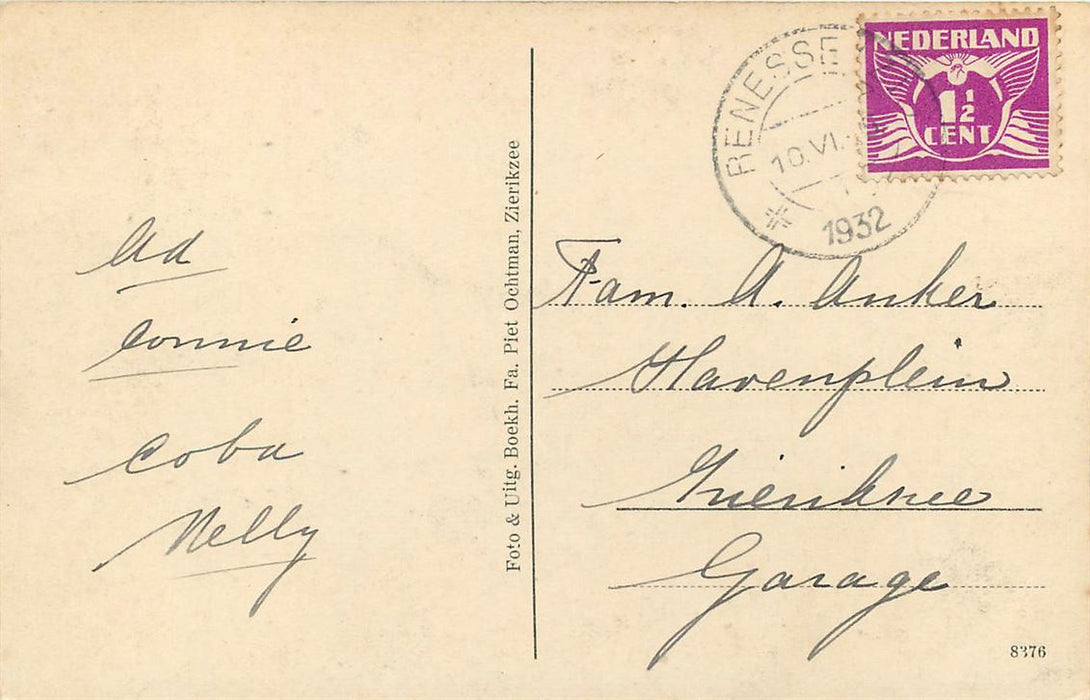 Ad
Connie
Coba
Nelly
Foto & Uitg. Boekh. Fa. Piet Ochtman, Zierikzee
RENESSE
10.VI.
1932
NEDERLAND
1½
CENT
Fam. A. Anker
Havenplein
Zierikzee
Garage
8376